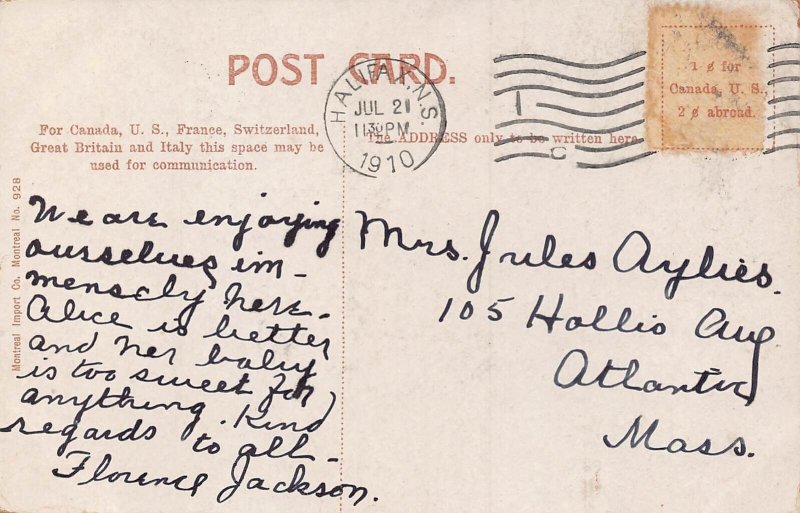 POST CARD.
HALIFAX, N.S.
JUL 21
11 30 PM
1910
1 ¢ for
Canada, U. S.,
2 ¢ abroad.
For Canada, U. S., France, Switzerland,
Great Britain and Italy this space may be
used for communication.
The ADDRESS only to be written here
Montreal Import Co. Montreal No. 928
We are enjoying
ourselves im-
mensely here.
Alice is better
and her baby
is too sweet for
anything. Kind
regards to all-
Florence Jackson.
Mrs. Jules Aylies.
105 Hollis Aug
Atlantic
Mass.